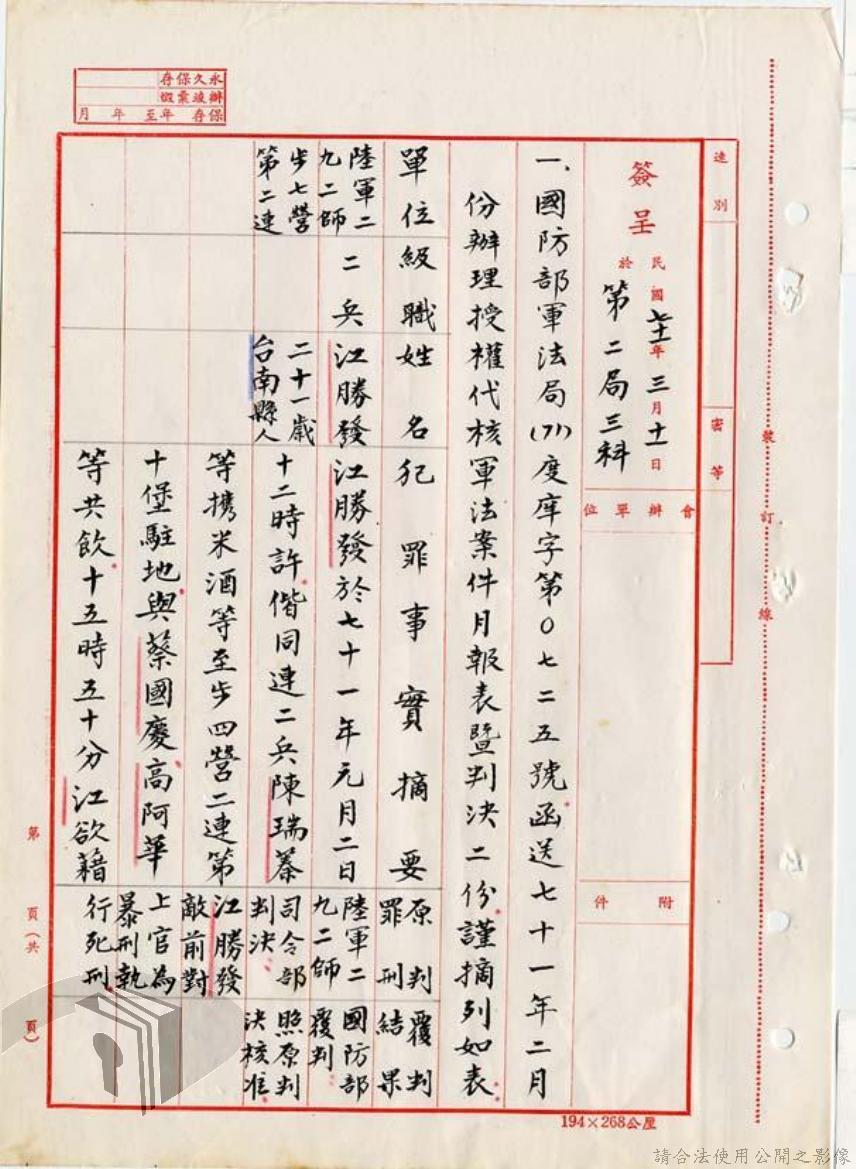 永久保存
辦竣彙燬
保存 年至 年 月
速別
密等
簽呈
民國七十一年三月十一日
於第二局三科
會辦單位
附件
一、國防部軍法局(71)度庠字第0七二五號函送七十一年二月
份辦理授權代核軍法案件月報表暨判決二份謹摘列如表
單位
級職
姓名
犯罪事實摘要
原判罪刑
覆判結果
陸軍二
九二師
步七營
第二連
二兵
江勝發
二十一歲
台南縣人
江勝發於七十一年元月二日
十二時許偕同連二兵陳瑞蓁
等攜米酒等至步四營二連第
十堡駐地與蔡國慶、高阿華
等共飲十五時五十分江欲藉
陸軍二
九二師
司令部
判決:
江勝發
敵前對
上官為
暴刑執
行死刑
國防部
覆判
照原判
決核准
裝訂線
第 頁(共 頁)
194×268公厘
請合法使用公開之影像